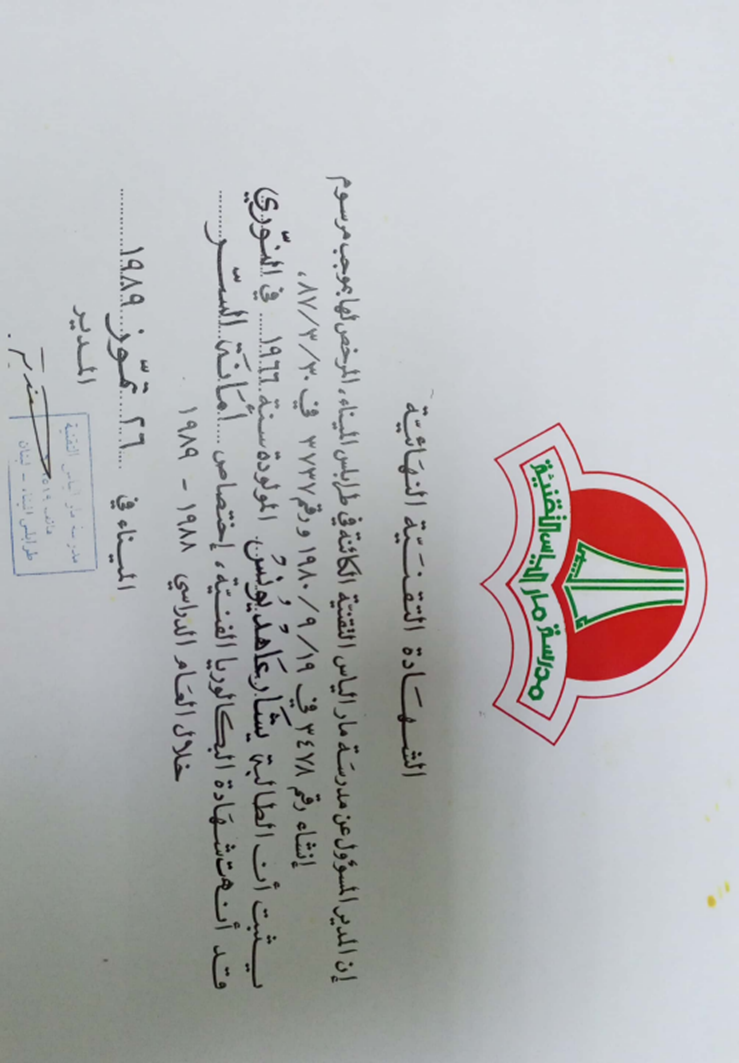 مدرسة مار الياس التقنية
الشهادة التقنية النهائية
إن المدير المسؤول عن مدرسة مار الياس التقنية الكائنة في طرابلس الميناء، المرخص لها بموجب مرسوم
إنشاء رقم ٣٤٧٨ في ١٩/٩/١٩٨٠ و رقم ٣٧٣٧ في ٣٠/٣/٨٧،
يثبت أن الطالبة عاهد يونس المولودة سنة ١٩٦٦ في
قد أنهت شهادة البكالوريا الفنية، إختصاص أمانة السّر
خلال العام الدراسي ١٩٨٨ - ١٩٨٩
الميناء في ٢٦ تمّوز ١٩٨٩
المدير
مدرسة مار الياس التقنية
هاتف
طرابلس الميناء - لبنان